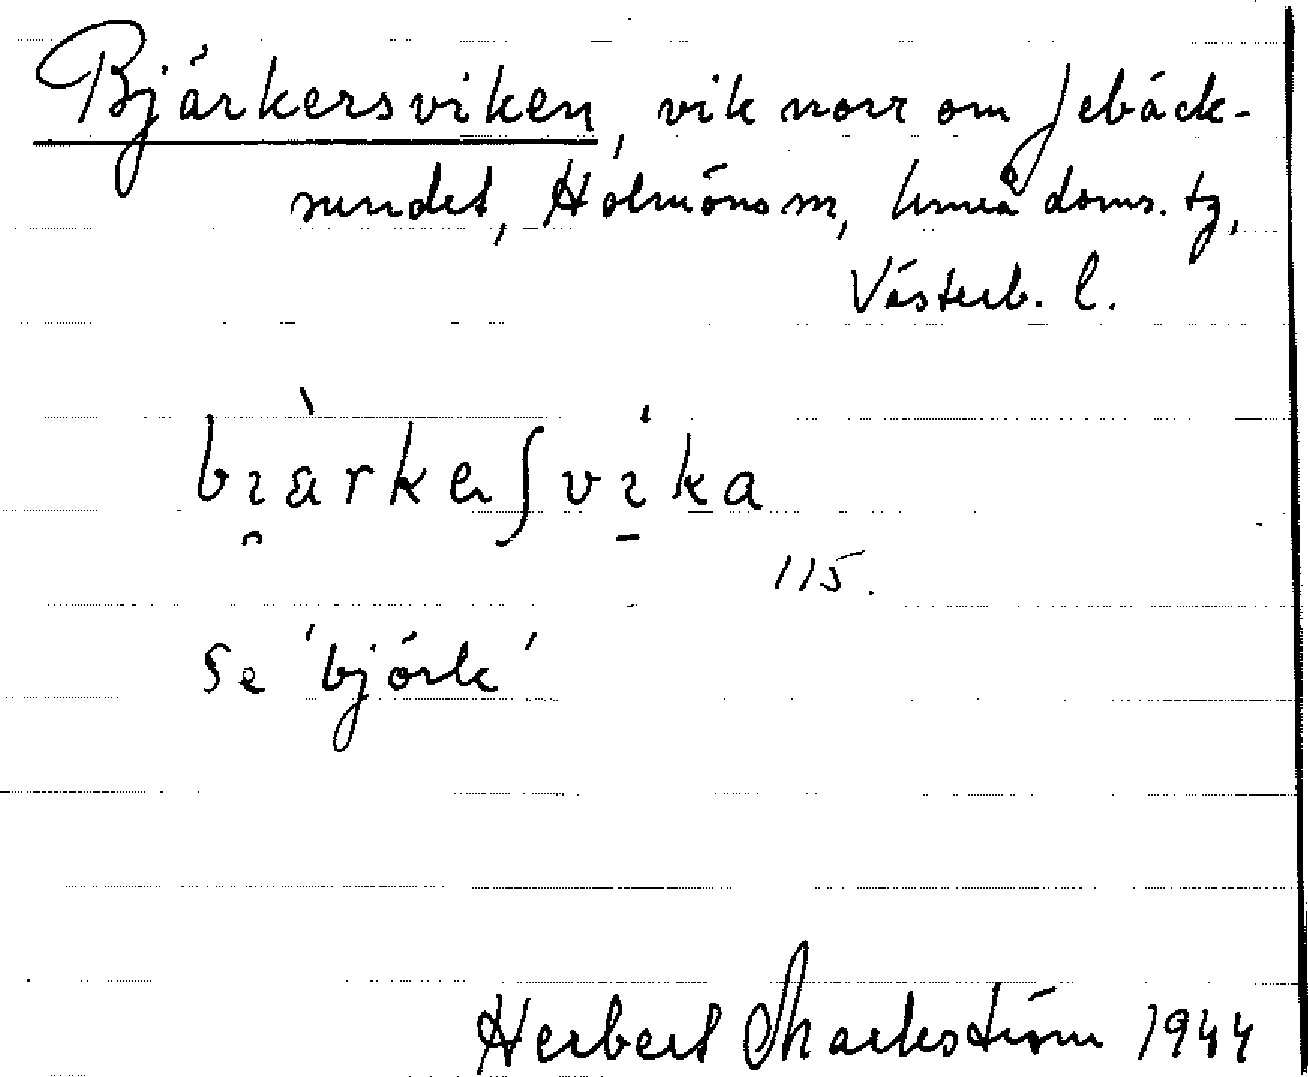 Bjärkersviken, vik norr om Jebäck-
sundet, Holmöns sn, Umeå doms. tg,
Västerb. l.
bi̯àrkeʃvi̱ka
115.
Se 'björk'
Herbert Markström 1944